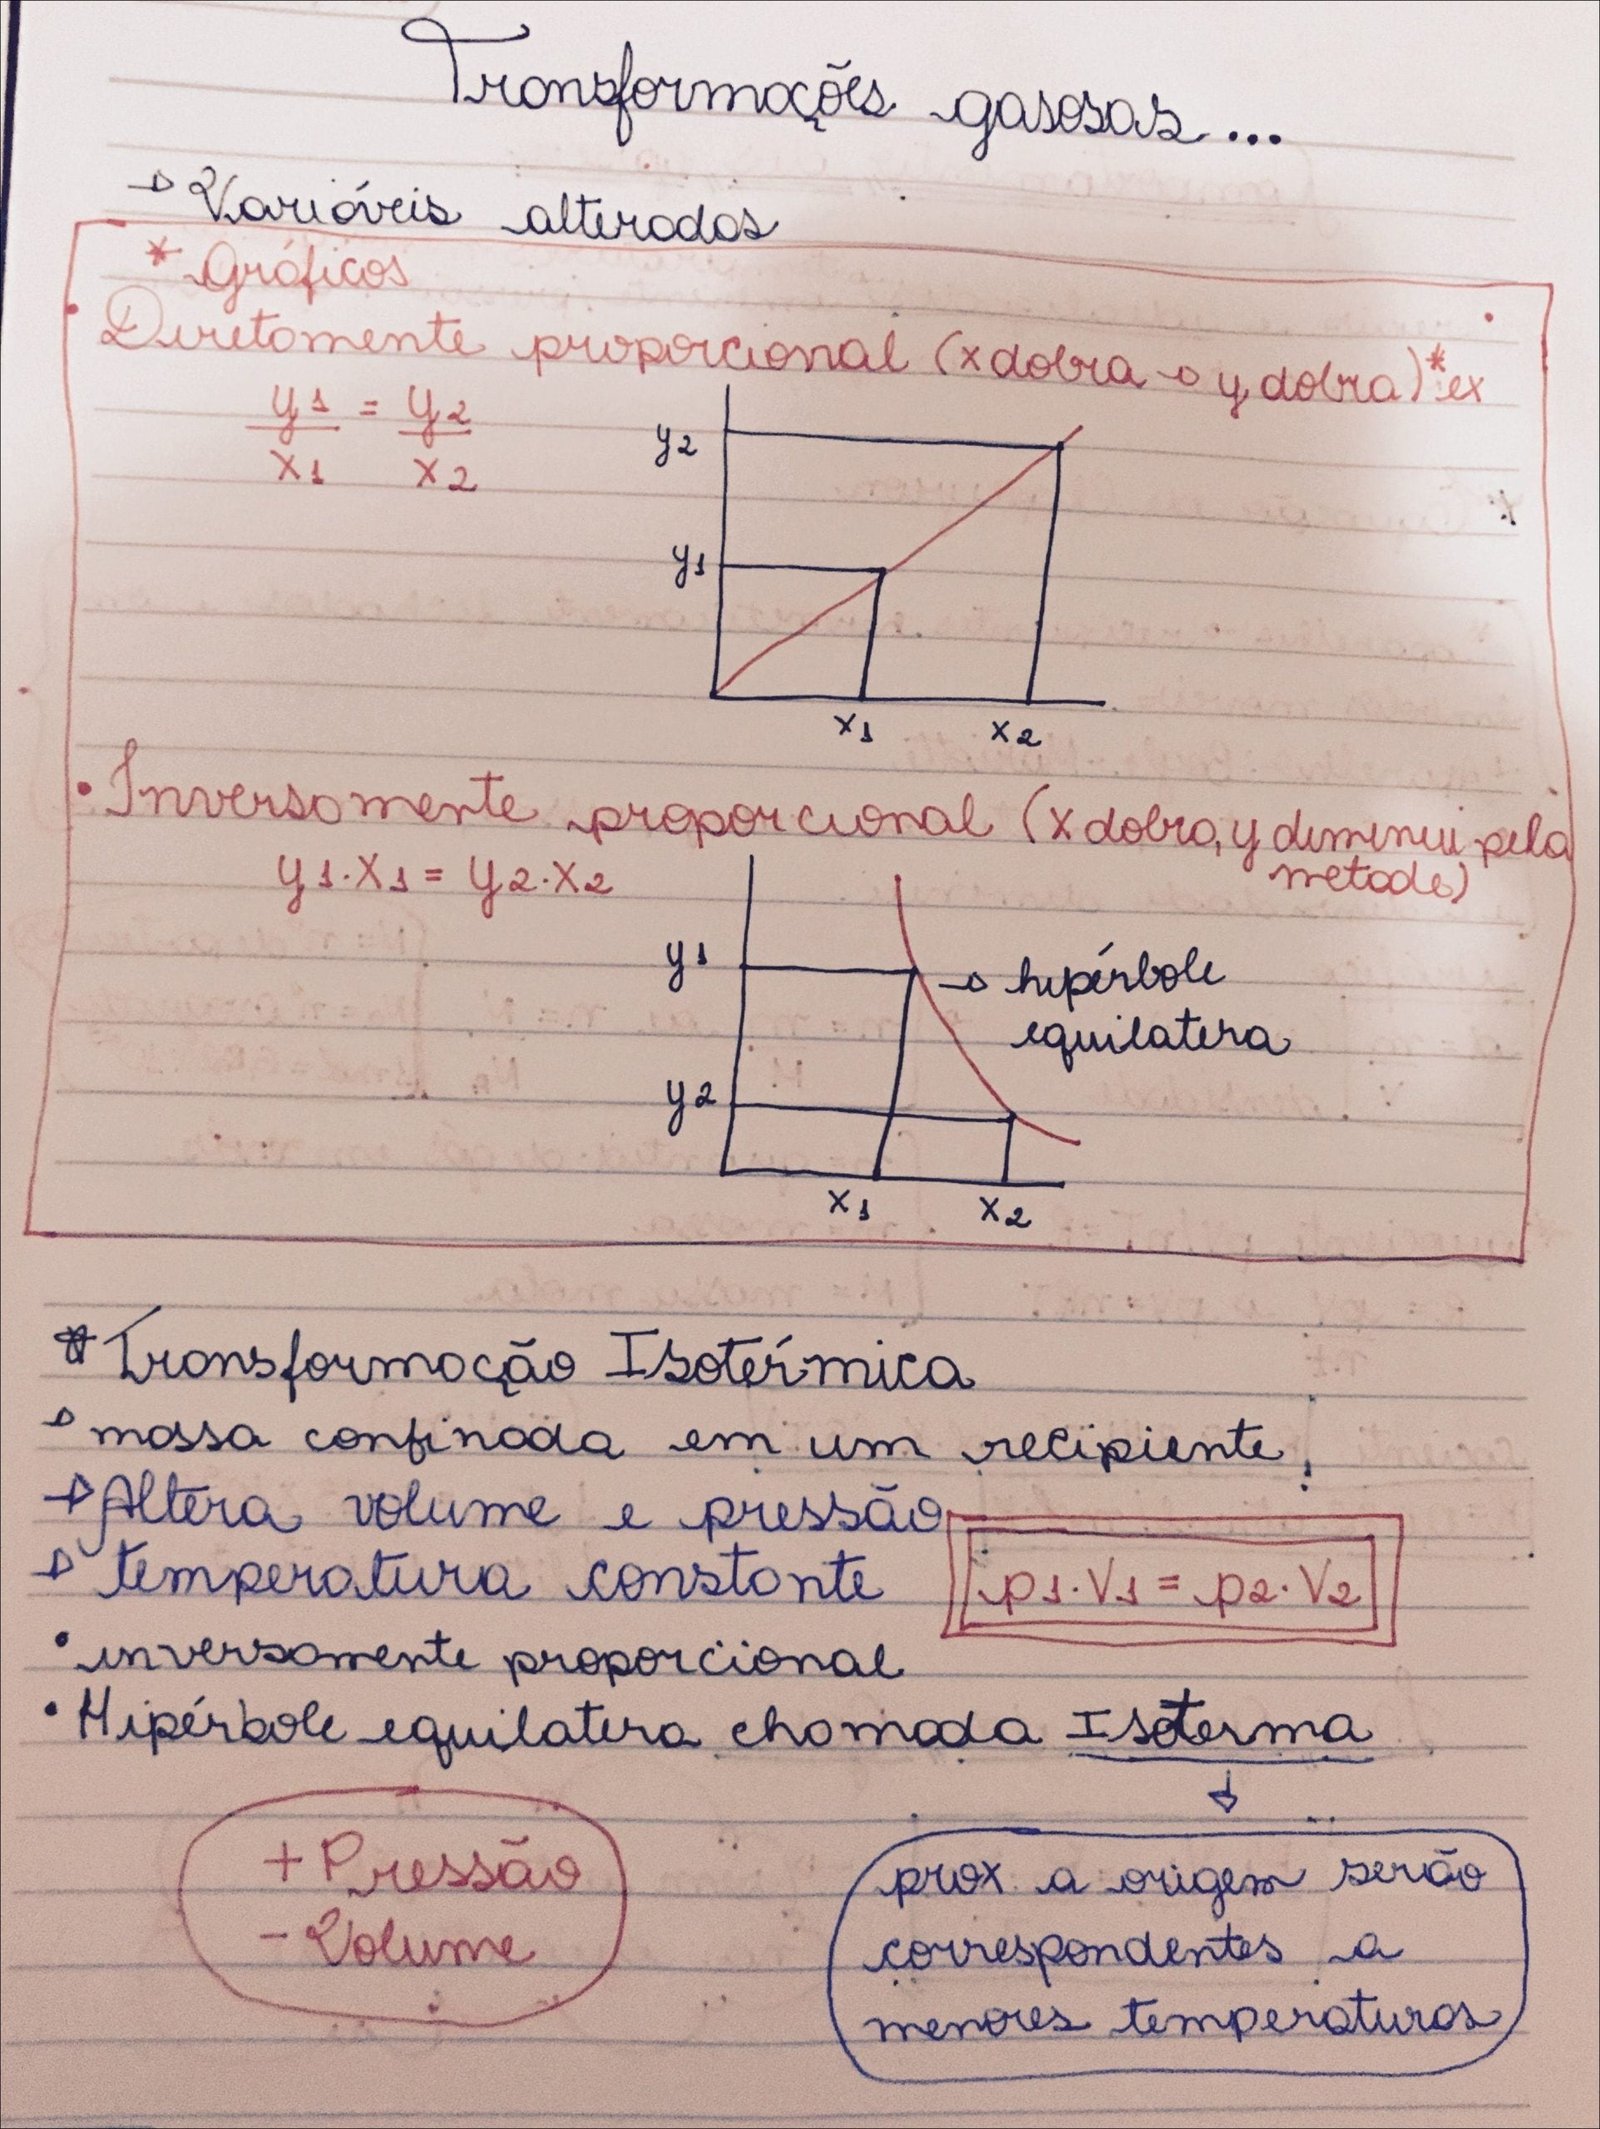 Transformações gasosas...
→ Variáveis alteradas
* Gráficos
• Diretamente proporcional (x dobra → y dobra) * ex
y1 = y2
x1 x2
y2
y1
x1 x2
• Inversamente proporcional (x dobra, y diminui pela
metade)
y1·x1 = y2·x2
y1
→ hipérbole
equilatera
y2
x1 x2
* Transformação Isotérmica
→ massa confinada em um recipiente
→ Altera volume e pressão
→ temperatura constante
p1·V1 = p2·V2
• inversamente proporcional
• Hipérbole equilatera chamada Isoterma
↓
+ Pressão
- Volume
prox a origem serão
correspondentes a
menores temperaturas